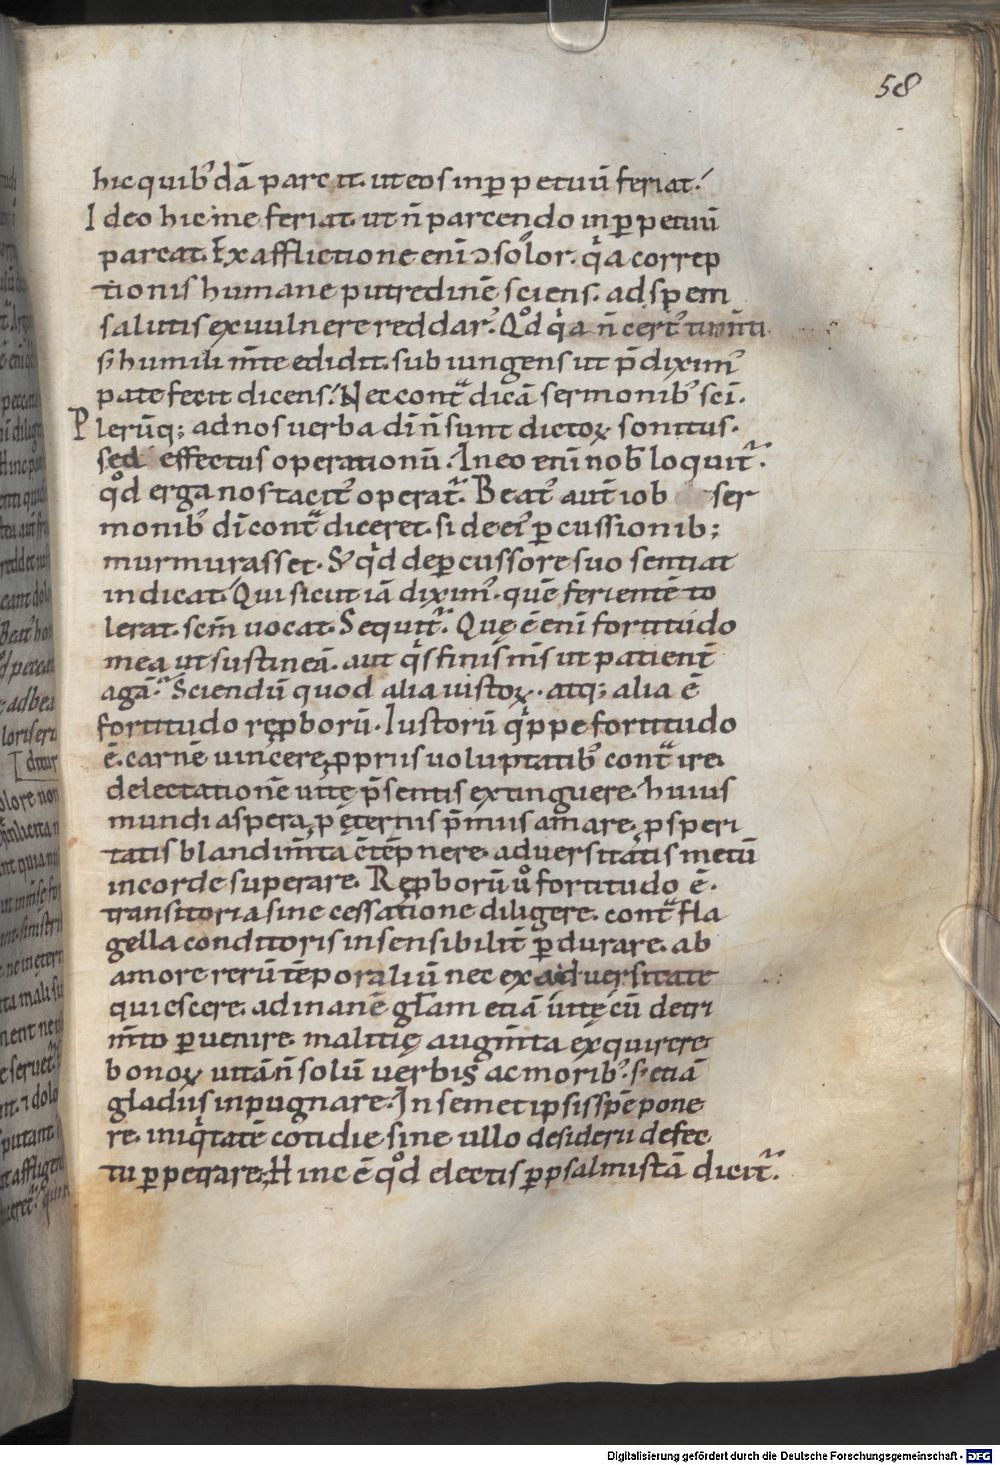 58
hic quib᾽dā parcit. ut eos inꝑpetuū feriat.
Ideo hic me feriat. ut n̄ parcendo inꝑpetuū
parcat. Ex afflictione enī ↄsolor. qͥa correp
tionis humane putredinē sciens. ad spem
salutis ex uulnere reddar᾽. Qͦd qͥa n̄ cert᾽
s; humili m̄te edidit. subiungens ut p̄dixim᾽
patefecit dicens. Nec contᵃdicā sermonib᾽ sc̄i.
Plerūq; ad nos uerba dī n̄ sunt dictoꝝ sonitus.
sed effectus operationū. In eo enī nob̄ loquit᾽.
qͦd erga nos tacit᾽ operat᾽. Beat᾽ aut̄ iob ser
monib᾽ dī contᵃdiceret. si de ei᾽ ꝑcussionib;
murmurasset. S; qͥd de ꝑcussore suo sentiat
indicat. Qui sicut iā dixim᾽. quē ferientē to
lerat. sc̄m uocat. Sequit᾽. Quę ē enī fortitudo
mea ut sustineā. aut qͥs finis m̄s ut patient̄
agā. Sciendū quod alia iustoꝝ. atq; alia ē
fortitudo rep̱borū. Iustorū qͥppe fortitudo
ē. carnē uincere. ꝓpriis uoluptatib᾽ contᵃire.
delectationē uitę p̄sentis extinguere. huius
mundi aspera, ꝓ ęternis p̄miis amare. ꝓsperi
tatis blandim̄ta cōtēpnere. aduersitatis metū
in corde superare. Reꝓborū uͦ fortitudo ē.
transitoria sine cessatione diligere. contᵃ fla
gella conditoris insensibilit̄ ꝑdurare. ab
amore rerū tēporaliū nec ex aduersitate
quiescere. ad inanē gl̄am etiā uitę cū detri
m̄to ꝑuenire. malitię augm̄ta exquirere.
bonoꝝ uitā n̄ solū uerbis ac morib᾽. s; etiā
gladiis inpugnare. In semetipsis spē pone
re. iniqͥtatē cotidie sine ullo desiderii defec
tu ꝑpetrare. Hinc ē qͦd electis ꝑ psalmistā dicit᾽.
Digitalisierung gefördert durch die Deutsche Forschungsgemeinschaft - DFG